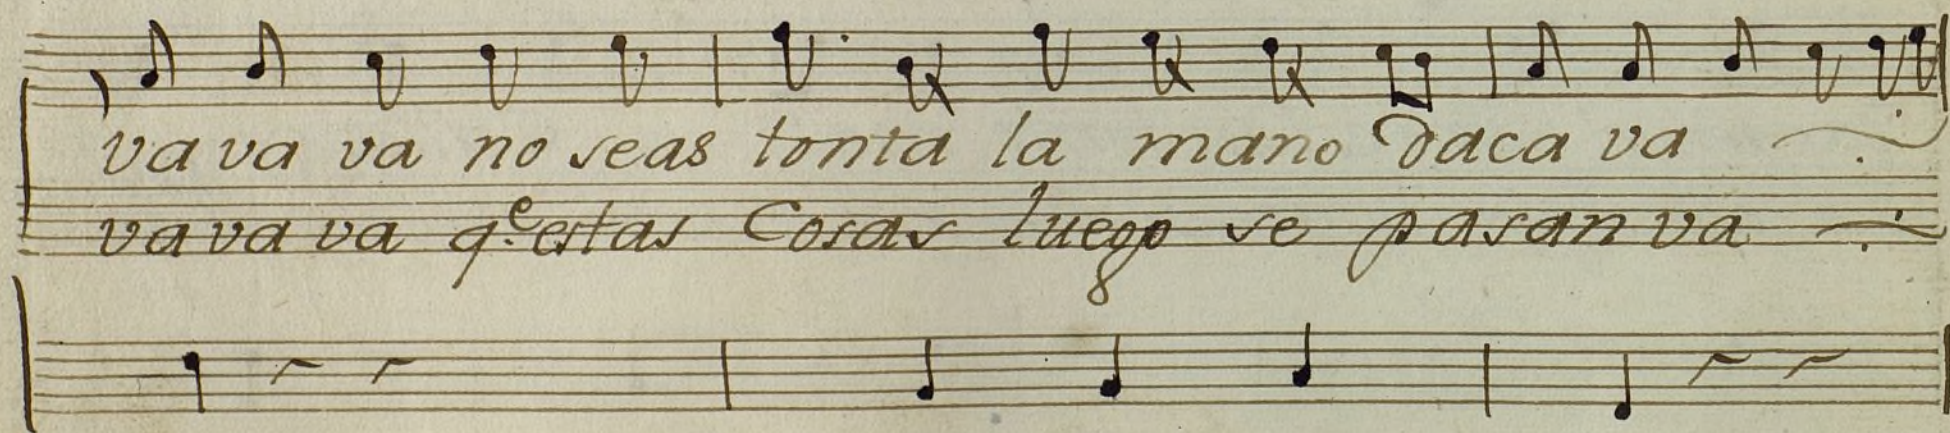 va va va no seas tonta la mano daca va
va va va q.e estas Cosas luego se pasan va